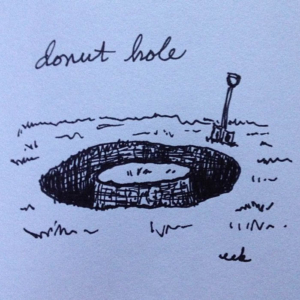 donut hole
eek